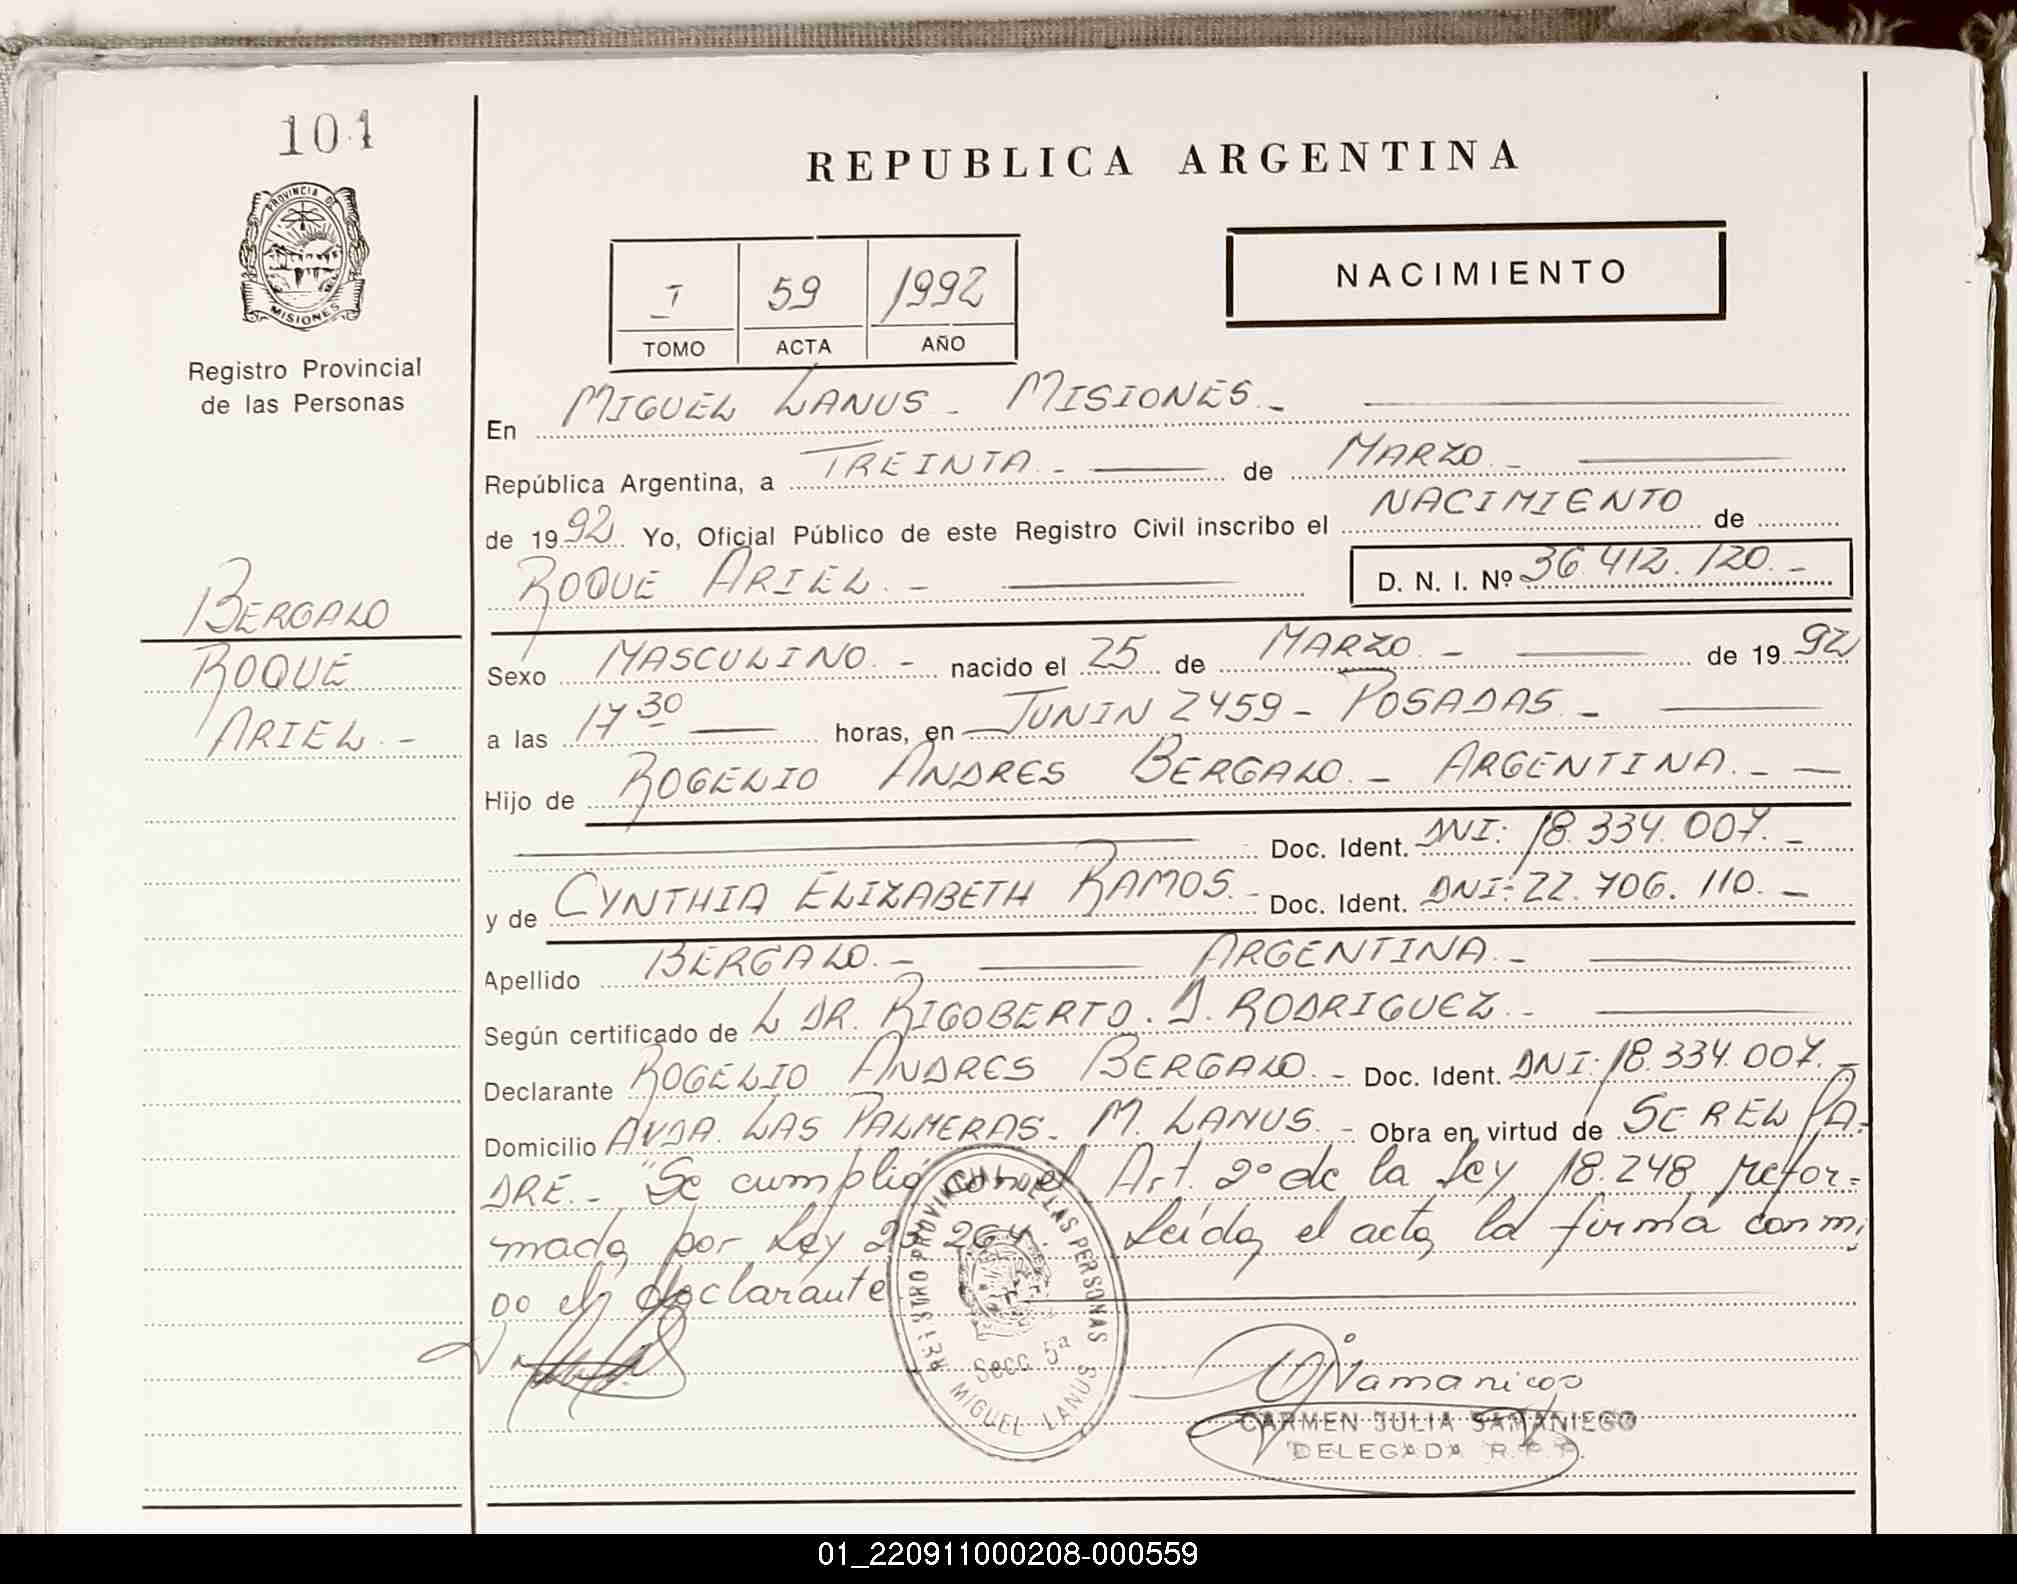 101
PROVINCIA DE
MISIONES
Registro Provincial
de las Personas
BERGALO
ROQUE
ARIEL.-
REPUBLICA ARGENTINA
I 59 1992
TOMO ACTA AÑO
NACIMIENTO
En MIGUEL LANUS - MISIONES.-
República Argentina, a TREINTA.- de MARZO.-
de 1992 Yo, Oficial Público de este Registro Civil inscribo el NACIMIENTO de
ROQUE ARIEL.- D. N. I. Nº 36.412.120.-
Sexo MASCULINO.- nacido el 25 de MARZO.- de 1992
a las 17 30 horas, en JUNIN 2459 - POSADAS.-
Hijo de ROGELIO ANDRES BERGALO.- ARGENTINA.-
Doc. Ident. DNI: 18.334.007.-
y de CYNTHIA ELIZABETH RAMOS.- Doc. Ident. DNI: 22.706.110.-
Apellido BERGALO.- ARGENTINA.-
Según certificado de L DR. RIGOBERTO. D. RODRIGUEZ.-
Declarante ROGELIO ANDRES BERGALO.- Doc. Ident. DNI: 18.334.007.-
Domicilio AVDA. LAS PALMERAS - M. LANUS.- Obra en virtud de SER EL PA-
DRE.- "Se cumplió con el Art. 2º de la Ley 18.248 refor=
mada por Ley 23.264. Leída el acta la firma conmi
go el declarante
REGISTRO PROVINCIAL DE LAS PERSONAS
Secc. 5ª
MIGUEL LANUS
CARMEN JULIA SAMANIEGO
DELEGADA R.P.P.
01_220911000208-000559